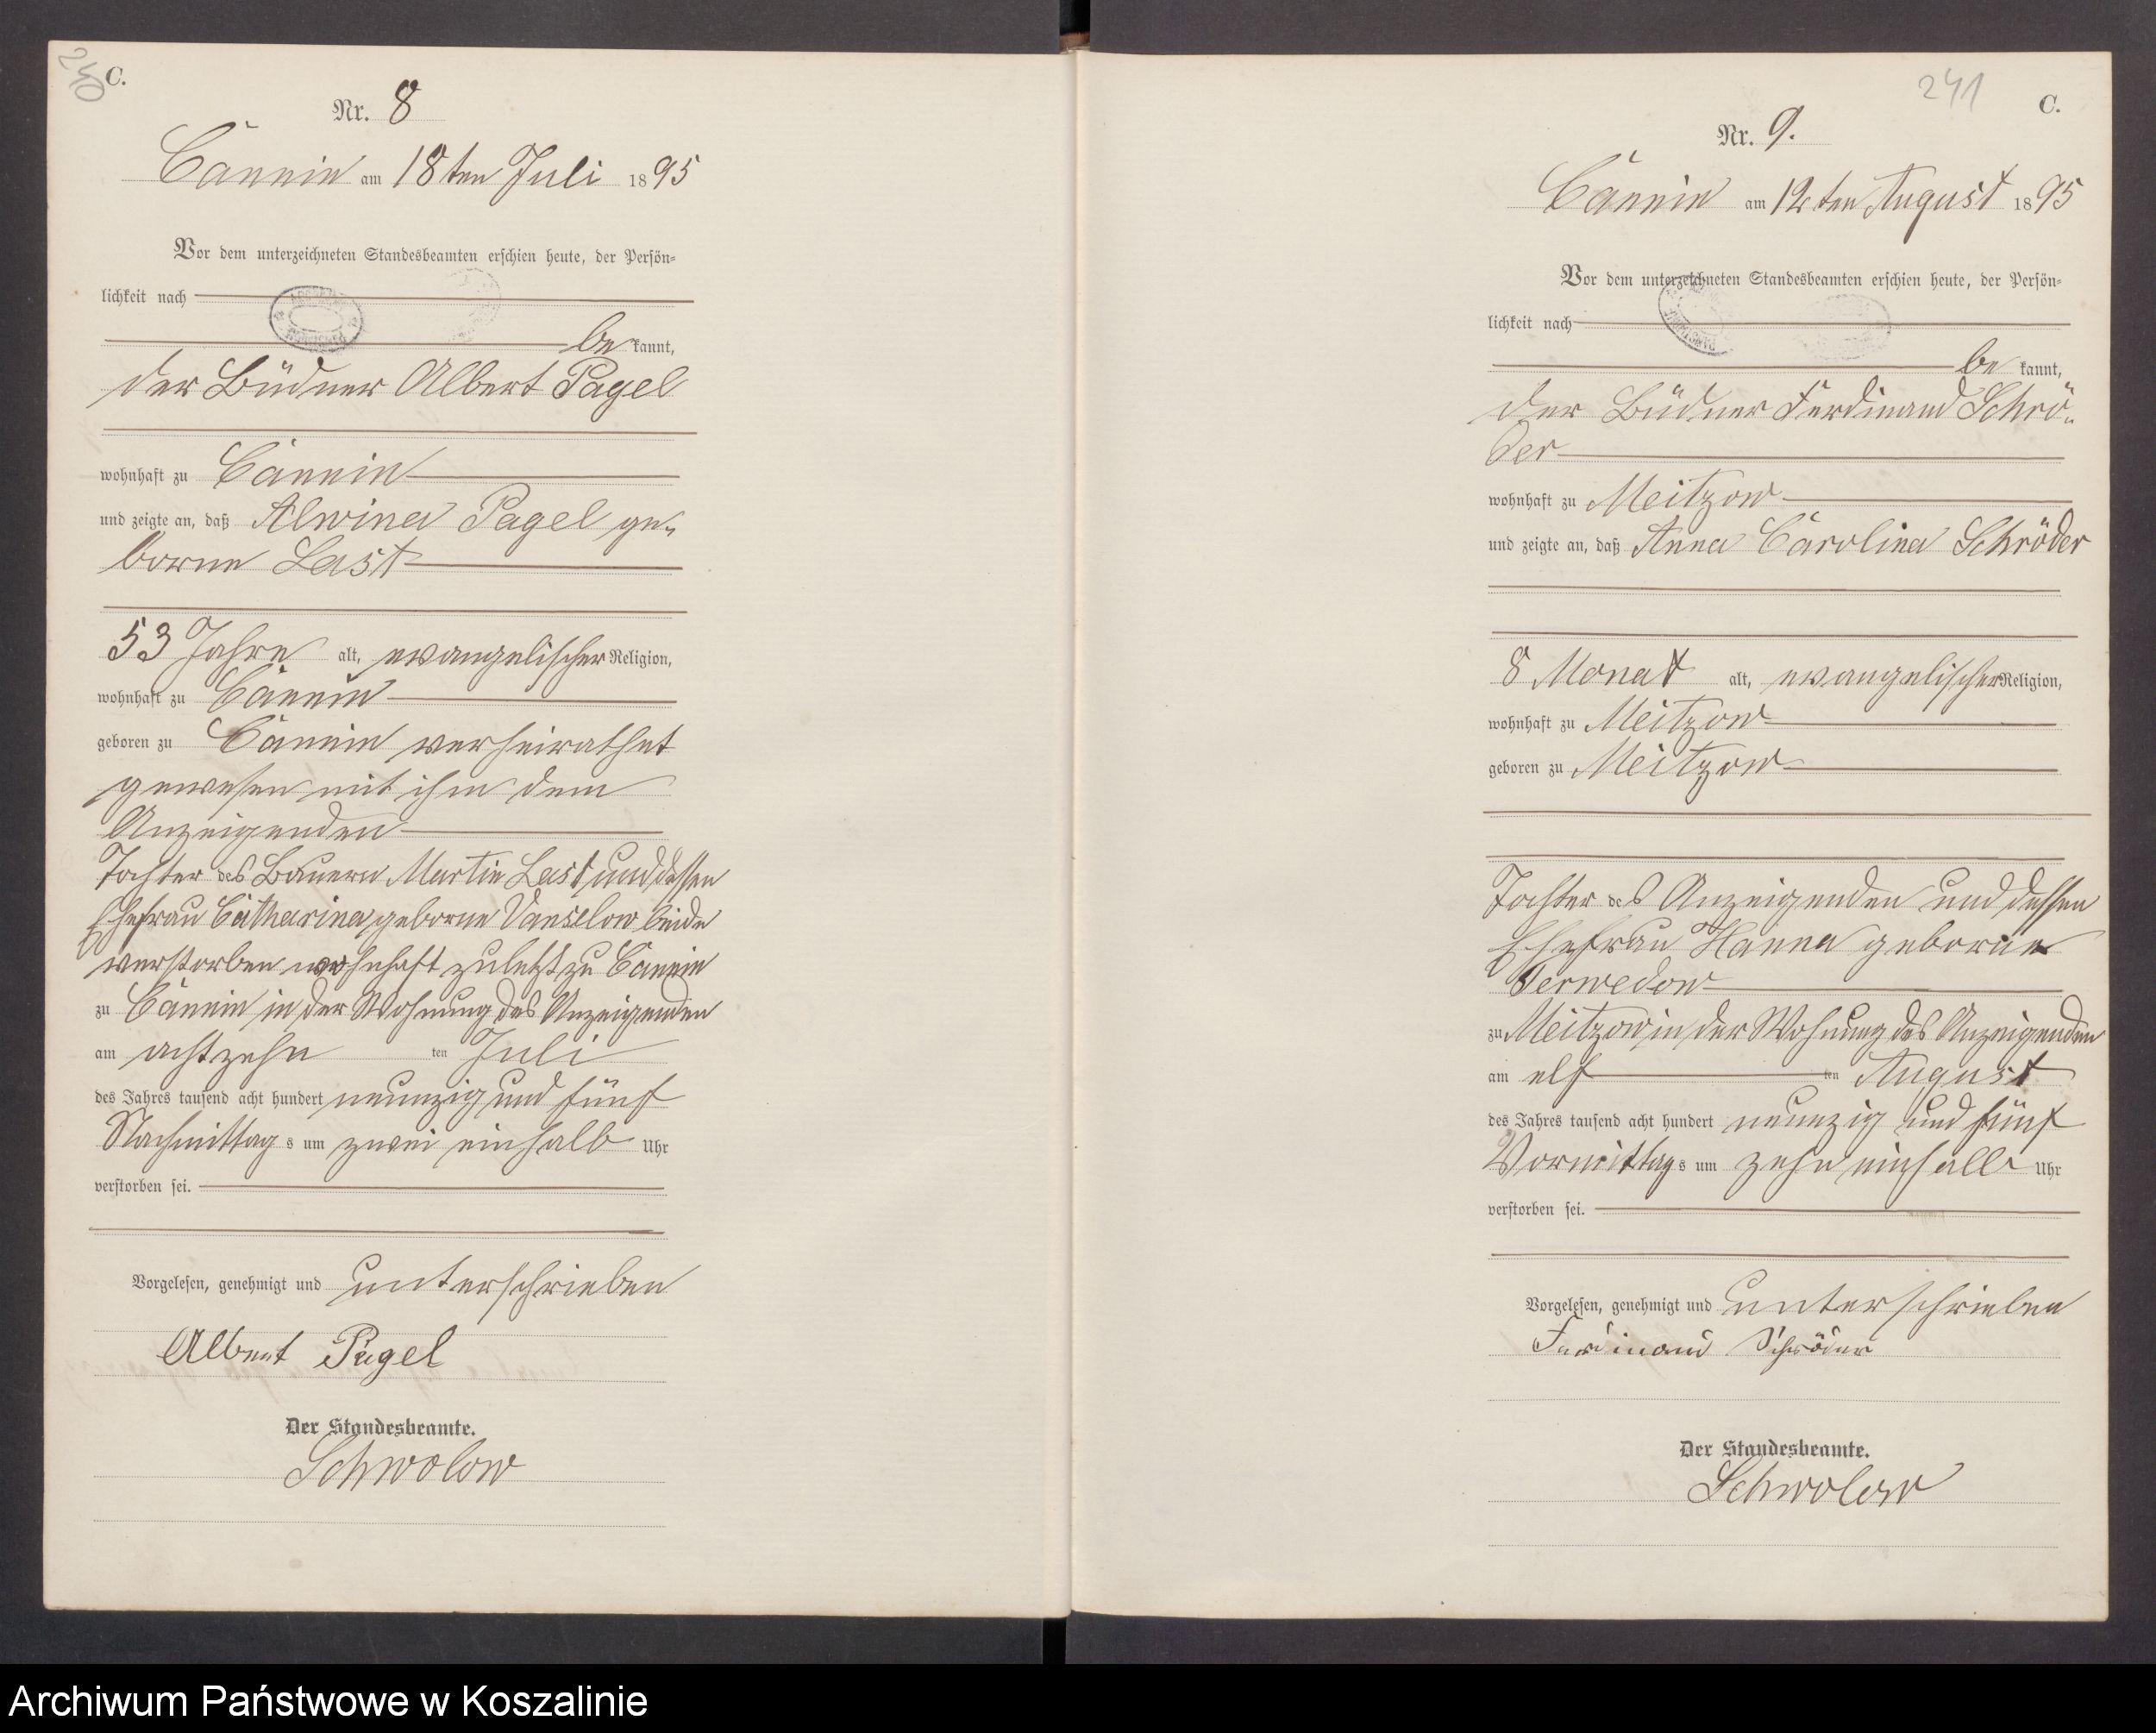 C.
Nr. 8
Cannin am 18ten Juli 1895
Vor dem unterzeichneten Standesbeamten erschien heute, der Persön-
lichkeit nach
be kannt,
der Büdner Albert Pagel
wohnhaft zu Cannin
und zeigte an, daß Alwine Pagel ge-
borne Last
53 Jahre alt, evangelischer Religion,
wohnhaft zu Cannin
geboren zu Cannin verheirathet
gewesen mit ihm dem
Anzeigenden
Tochter des Bauern Martin Last und dessen
Ehefrau Catharina geborne Vanselow beide
verstorben wohnhaft zuletzt zu Cannin
zu Cannin in der Wohnung des Anzeigenden
am achtzehn ten Juli
des Jahres tausend acht hundert neunzig und fünf
Nachmittags um zwei einhalb Uhr
verstorben sei.
Vorgelesen, genehmigt und unterschrieben
Albert Pagel
Der Standesbeamte.
Schwolow
241
C.
Nr. 9.
Cannin am 12ten August 1895
Vor dem unterzeichneten Standesbeamten erschien heute, der Persön-
lichkeit nach
be kannt,
der Büdner Ferdinand Schrö-
der
wohnhaft zu Meitzow
und zeigte an, daß Anna Carolina Schröder
8 Monat alt, evangelischer Religion,
wohnhaft zu Meitzow
geboren zu Meitzow
Tochter des Anzeigenden und dessen
Ehefrau Hanna geborne
Perwedow
zu Meitzow in der Wohnung des Anzeigenden
am elf ten August
des Jahres tausend acht hundert neunzig und fünf
Vormittags um zehn einhalb Uhr
verstorben sei.
Vorgelesen, genehmigt und unterschrieben
Ferdinand Schröder
Der Standesbeamte.
Schwolow
Archiwum Państwowe w Koszalinie